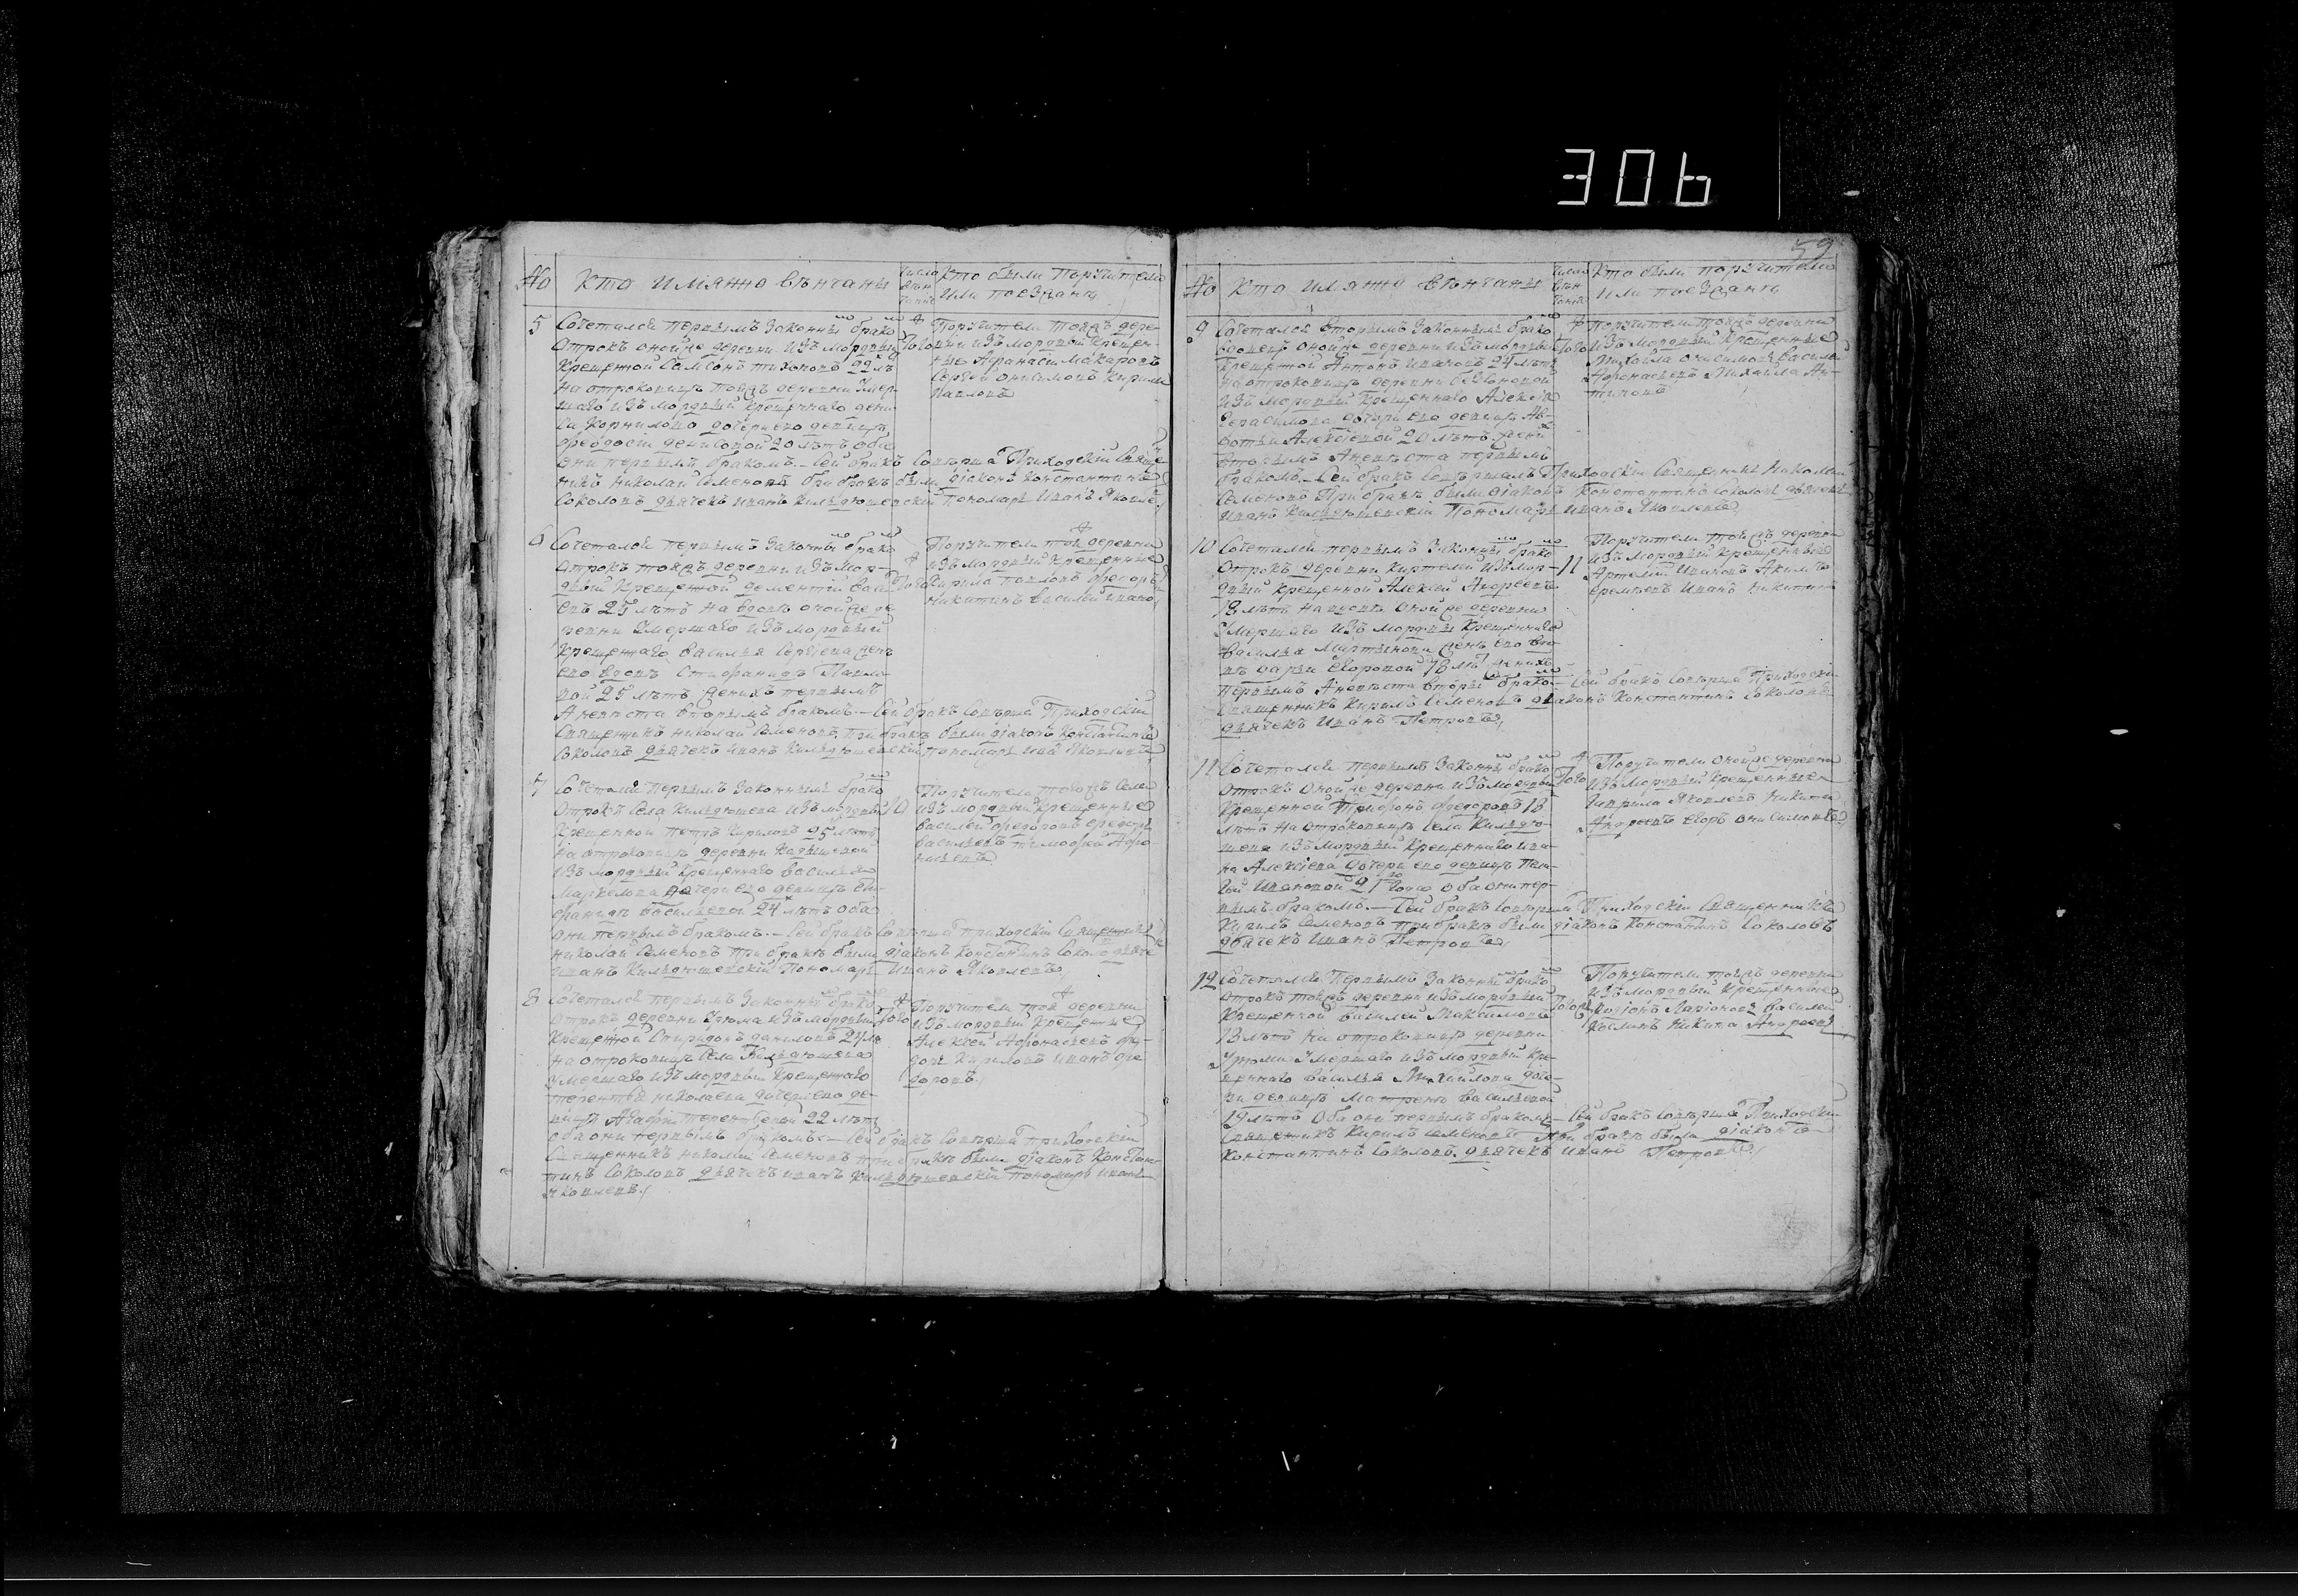 306
№
Кто имянно вѣнчаны
Число вѣнчания
Кто были поручители
или поезжанѣ
5
Сочетался первымъ законны бракомъ
отрокъ оной же деревни изъ мордвы
крещенной Самсонъ Тихоновъ 22 лѣ
на отроковицѣ тояжъ деревни умер
шаго изъ мордвы крещеннаго Дени
са Корнилова дочери его девицѣ
Федосьи Денисовой 20 лѣтъ оба
они первымъ бракомъ. Сей бракъ совѣрша Приходскій Свяще
никъ Николай Семеновъ при бракѣ были діаконъ Константинъ
Соколовъ дьячекъ Иванъ Кильдюшевскій Пономарь Иванъ Яковле
Тогожъ
Поручители тояжъ дере
вни изъ мордвы крещен
ные Афанасій Макаровъ
Сергѣй Онисимовъ Кирила
Павловъ
6
Сочетался первымъ законны бракомъ
отрокъ тояжъ деревни изъ мор
двы крещенной Дементій Васи
евъ 25 лѣтъ на вдовѣ оной же де
ревни умершаго изъ мордвы
крещеннаго Василья Сергѣева жен
его вдовѣ Стефанидѣ Павло
вой 25 лѣтъ женихъ первымъ
а невѣста вторымъ бракомъ. Сей бракъ совѣрша Приходскій
Священникъ Николай Семеновъ при бракѣ были діаконъ Константинъ
Соколовъ дьячекъ Иванъ Кильдюшевскій пономарь Иванъ Яковлевъ
Тогожъ
Поручители той деревни
изъ мордвы крещенные
Кирила Павловъ Федоръ
Никитинъ Василей Ивано
7
Сочетался первымъ законнымъ бракомъ
отрокъ села Кильдюшева изъ мордвы
крещенной Петръ Кириловъ 25 лѣтъ
на отроковицѣ деревни
изъ мордвы крещеннаго Василья
Маркелова дочери его девицѣ
Васильевой 24 лѣтъ оба
они первымъ бракомъ. Сей бракъ совѣрша приходскій священникъ
Николай Семеновъ при бракѣ были діаконъ Константинъ Соколо дьяче
Иванъ Кильдюшевскій Пономарь Иванъ Яковлевъ
10
Поручители тогожъ села
изъ мордвы крещенные
Василей Федоровъ Федоръ
Васильевъ Тимофей Афо
насьевъ
8
Сочетался первымъ законны бракомъ
отрокъ деревни Утюма изъ мордвы
крещенной Спиридонъ Даниловъ 24 лѣ
на отроковицѣ села Кильдюшева
умершаго изъ мордвы крещеннаго
Терентья Николаева дочери его де
вицѣ Агафьи Терентьевой 22 лѣтъ
оба они первымъ бракомъ. Сей бракъ совѣрша приходскій
Священникъ Николай Семеновъ при бракѣ были діаконъ Констан
тинъ Соколовъ дьячекъ Иванъ Кильдюшевскій пономарь Иванъ
Яковлевъ
Тогожъ
Поручители той деревни
изъ мордвы крещенные
Алексей Афонасьевъ Фе
доръ Кириловъ Иванъ Фе
доровъ
59
№
Кто имянно вѣнчаны
Число вѣнчания
Кто были поручители
или поезжанѣ
9
Сочетался вторымъ законнымъ бракомъ
вдовецъ оной же деревни изъ мордвы
крещенной Антонъ Ивановъ 24 лѣтъ
на отроковицѣ деревни
изъ мордвы крещеннаго Алексія
Герасимова дочери его девицѣ Ав
дотьи Алексіевой 20 лѣтъ жени
вторымъ а невѣста первымъ
бракомъ. Сей бракъ совѣршалъ Приходскій Священникъ Николай
Семеновъ При бракѣ были діаконъ Константинъ Соколовъ дьячекъ
Иванъ Кильдюшевскій Пономарь Иванъ Яковлевъ
Тогожъ
Поручители тояжъ деревни
изъ мордвы крещенные
Михайла Онисимовъ Василей
Афонасьевъ Михайла Ан
типовъ
10
Сочетался первымъ законны бракомъ
отрокъ деревни Киртелей изъ мор
двы крещенной Алексей Андреевъ
18 лѣтъ на вдовѣ оной же деревни
умершаго изъ мордвы крещеннаго
Василья Мартынова женѣ его вдо
вѣ Дарьи Егоровой 18 лѣ женихъ
первымъ а невѣста вторы бракомъ Сей бракъ совѣрша Приходскій
Священникъ Кирилъ Семеновъ діаконъ Константинъ Соколовъ
дьячекъ Иванъ Петровъ
11
Поручители тояжъ деревни
изъ мордвы крещенные
Артемій Ивановъ Акимъ
Еремѣевъ Иванъ Никитин
11
Сочетался первымъ законны бракомъ
отрокъ оной же деревни изъ мордвы
крещенной Трифонъ Федоровъ 18
лѣтъ на отроковицѣ села Кильдю
шева изъ мордвы крещеннаго Ива
на Алексіева дочери его девицѣ Пела
геи Ивановой 21 году оба они пер
вымъ бракомъ. Сей бракъ совѣрша Приходскій Священникъ
Кирилъ Семеновъ при бракѣ были діаконъ Константинъ Соколовъ
дьячекъ Иванъ Петровъ
Тогожъ
Поручители оной же деревни
изъ мордвы крещенныя
Гаврила Яковлевъ Никита
Андреевъ Егоръ Онисимовъ
12
Сочетался первымъ законны бракомъ
отрокъ тояжъ деревни изъ мордвы
крещенной Василей Максимовъ
18 лѣтъ на отроковицѣ деревни
Утюма умершаго изъ мордвы кре
щеннаго Василья Михайлова доче
ри девицѣ Матренѣ Васильевой
19 лѣтъ оба они первымъ бракомъ. Сей бракъ совѣрша Приходскій
Священникъ Кирилъ Семеновъ При бракѣ были діаконъ
Константинъ Соколовъ дьячекъ Иванъ Петровъ
Тогожъ
Поручители тояжъ деревни
изъ мордвы крещенные
Родіонъ Ларіоновъ Василей
Никита Андреевъ